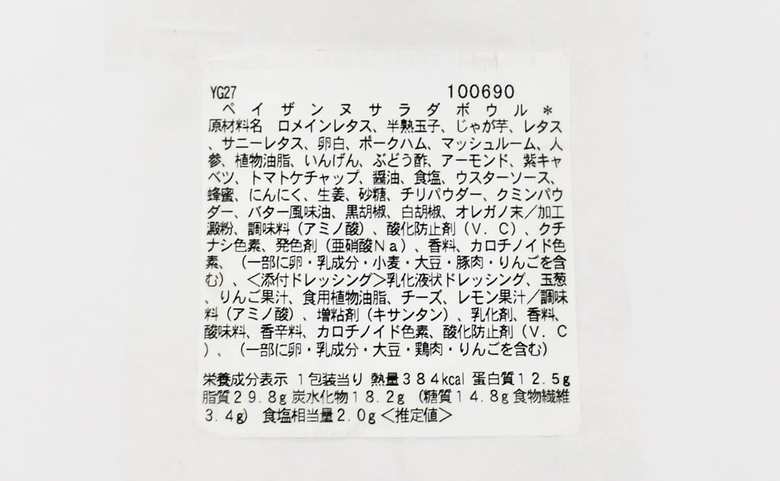 YG27 100690
ペイザンヌサラダボウル＊
原材料名 ロメインレタス、半熟玉子、じゃが芋、レタス
、サニーレタス、卵白、ポークハム、マッシュルーム、人
参、植物油脂、いんげん、ぶどう酢、アーモンド、紫キャ
ベツ、トマトケチャップ、醤油、食塩、ウスターソース、
蜂蜜、にんにく、生姜、砂糖、チリパウダー、クミンパウ
ダー、バター風味油、黒胡椒、白胡椒、オレガノ末／加工
澱粉、調味料（アミノ酸）、酸化防止剤（Ｖ．Ｃ）、クチ
ナシ色素、発色剤（亜硝酸Ｎａ）、香料、カロチノイド色
素、（一部に卵・乳成分・小麦・大豆・豚肉・りんごを含
む）、＜添付ドレッシング＞乳化液状ドレッシング、玉葱
、りんご果汁、食用植物油脂、チーズ、レモン果汁／調味
料（アミノ酸）、増粘剤（キサンタン）、乳化剤、香料、
酸味料、香辛料、カロチノイド色素、酸化防止剤（Ｖ．Ｃ
）、（一部に卵・乳成分・大豆・鶏肉・りんごを含む）
栄養成分表示 １包装当り 熱量３８４kcal 蛋白質１２．５g
脂質２９．８g 炭水化物１８．２g （糖質１４．８g 食物繊維
３．４g） 食塩相当量２．０g＜推定値＞